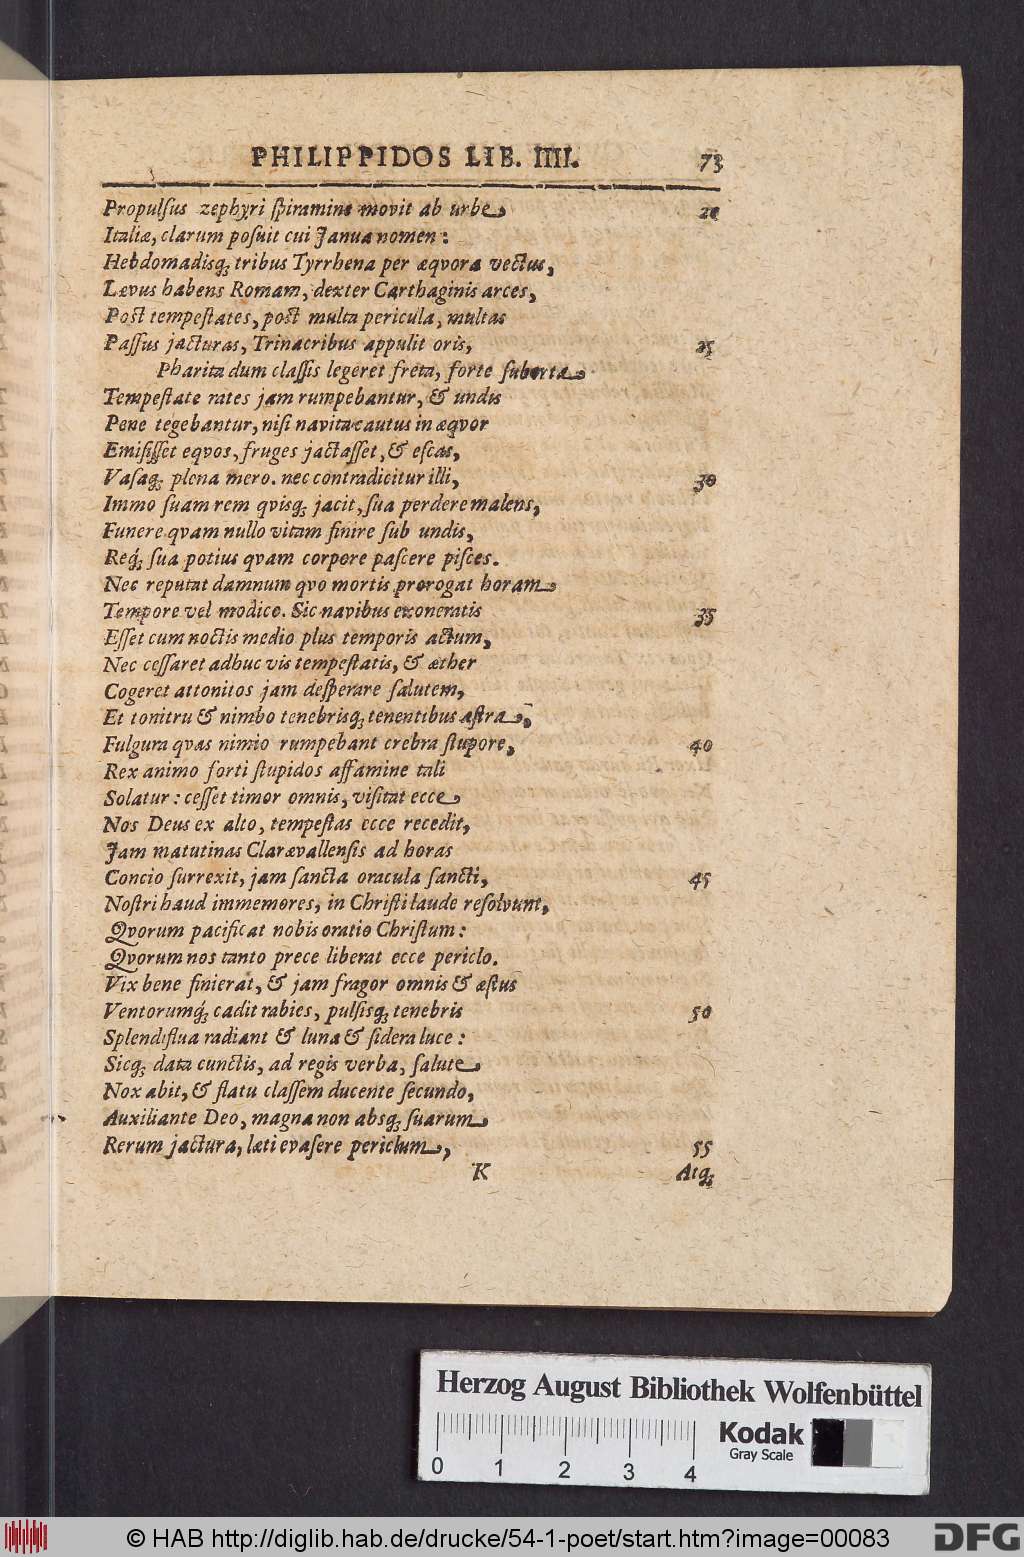 PHILIPPIDOS LIB. IIII. 73
Propulſus zephyri ſpiramine movit ab urbe 20
Italiæ, clarum poſuit cui Janua nomen:
Hebdomadisq; tribus Tyrrhena per æqvora vectus,
Lævus habens Romam, dexter Carthaginis arces,
Poſt tempeſtates, poſt multa pericula, multas
Paſſus jacturas, Trinacribus appulit oris, 25
Pharita dum claſſis legeret freta, forte ſuborta
Tempeſtate rates jam rumpebantur, & undis
Pene tegebantur, niſi navita cautus in æqvor
Emiſiſſet eqvos, fruges jactaſſet, & eſcas,
Vaſaq; plena mero. nec contradicitur illi, 30
Immo ſuam rem qvisq; jacit, ſua perdere malens,
Funere qvam nullo vitam finire ſub undis,
Req́; ſua potius qvam corpore paſcere piſces.
Nec reputat damnum qvo mortis prorogat horam
Tempore vel modico. Sic navibus exoneratis 35
Eſſet cum noctis medio plus temporis actum,
Nec ceſſaret adhuc vis tempeſtatis, & æther
Cogeret attonitos jam deſperare ſalutem,
Et tonitru & nimbo tenebrisq; tenentibus aſtra,
Fulgura qvas nimio rumpebant crebra ſtupore, 40
Rex animo forti ſtupidos affamine tali
Solatur: ceſſet timor omnis, viſitat ecce
Nos Deus ex alto, tempeſtas ecce recedit,
Jam matutinas Clarævallenſis ad horas
Concio ſurrexit, jam ſancta oracula ſancti, 45
Noſtri haud immemores, in Chriſti laude reſolvunt,
Qvorum pacificat nobis oratio Chriſtum:
Qvorum nos tanto prece liberat ecce periclo.
Vix bene finierat, & jam fragor omnis & æſtus
Ventorumq́; cadit rabies, pulſisq; tenebris 50
Splendiflua radiant & luna & ſidera luce:
Sicq; data cunctis, ad regis verba, ſalute
Nox abit, & flatu claſſem ducente ſecundo,
Auxiliante Deo, magna non absq; ſuarum
Rerum jactura, læti evaſere periclum, 55
K Atq;
Herzog August Bibliothek Wolfenbüttel
Kodak
Gray Scale
0 1 2 3 4
© HAB http://diglib.hab.de/drucke/54-1-poet/start.htm?image=00083
DFG